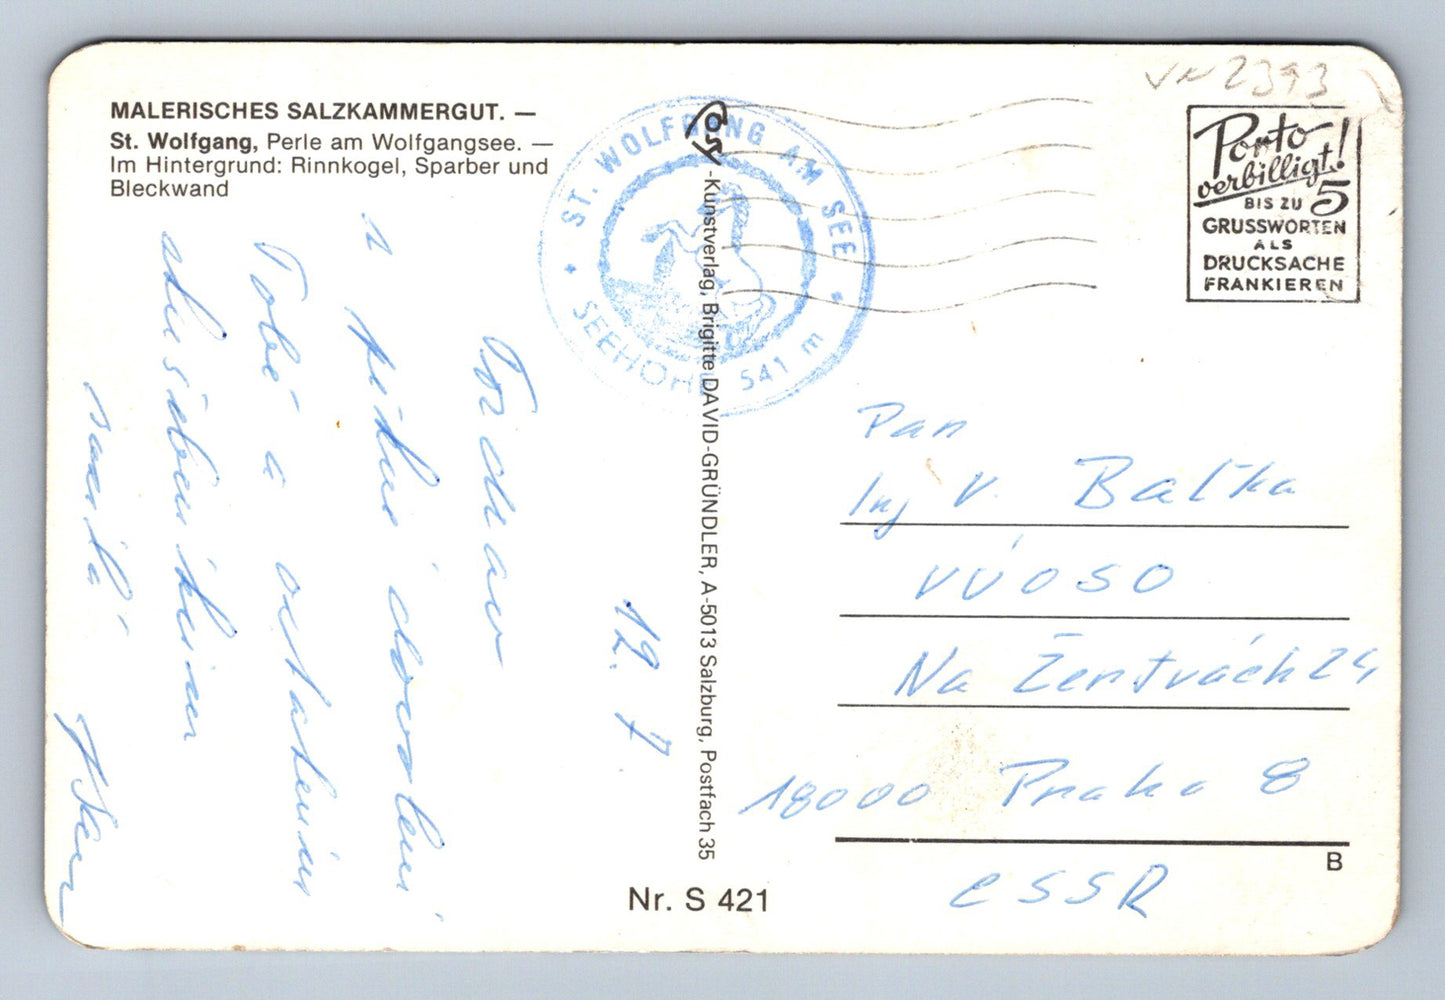 MALERISCHES SALZKAMMERGUT. —
St. Wolfgang, Perle am Wolfgangsee. —
Im Hintergrund: Rinnkogel, Sparber und
Bleckwand
12. 7
Pozdrav
z pěkné dovolené
Tobě a ostatním
posílá
Cosy-Kunstverlag, Brigitte DAVID-GRÜNDLER, A-5013 Salzburg, Postfach 35
Nr. S 421
ST. WOLFGANG AM SEE
SEEHÖHE 541 m
2393
Porto
verbilligt!
BIS ZU 5
GRUSSWORTEN
ALS
DRUCKSACHE
FRANKIEREN
Pan
Ing V. Baťka
VÚOSO
Na Žertvách 24
18000 Praha 8
B
ČSSR